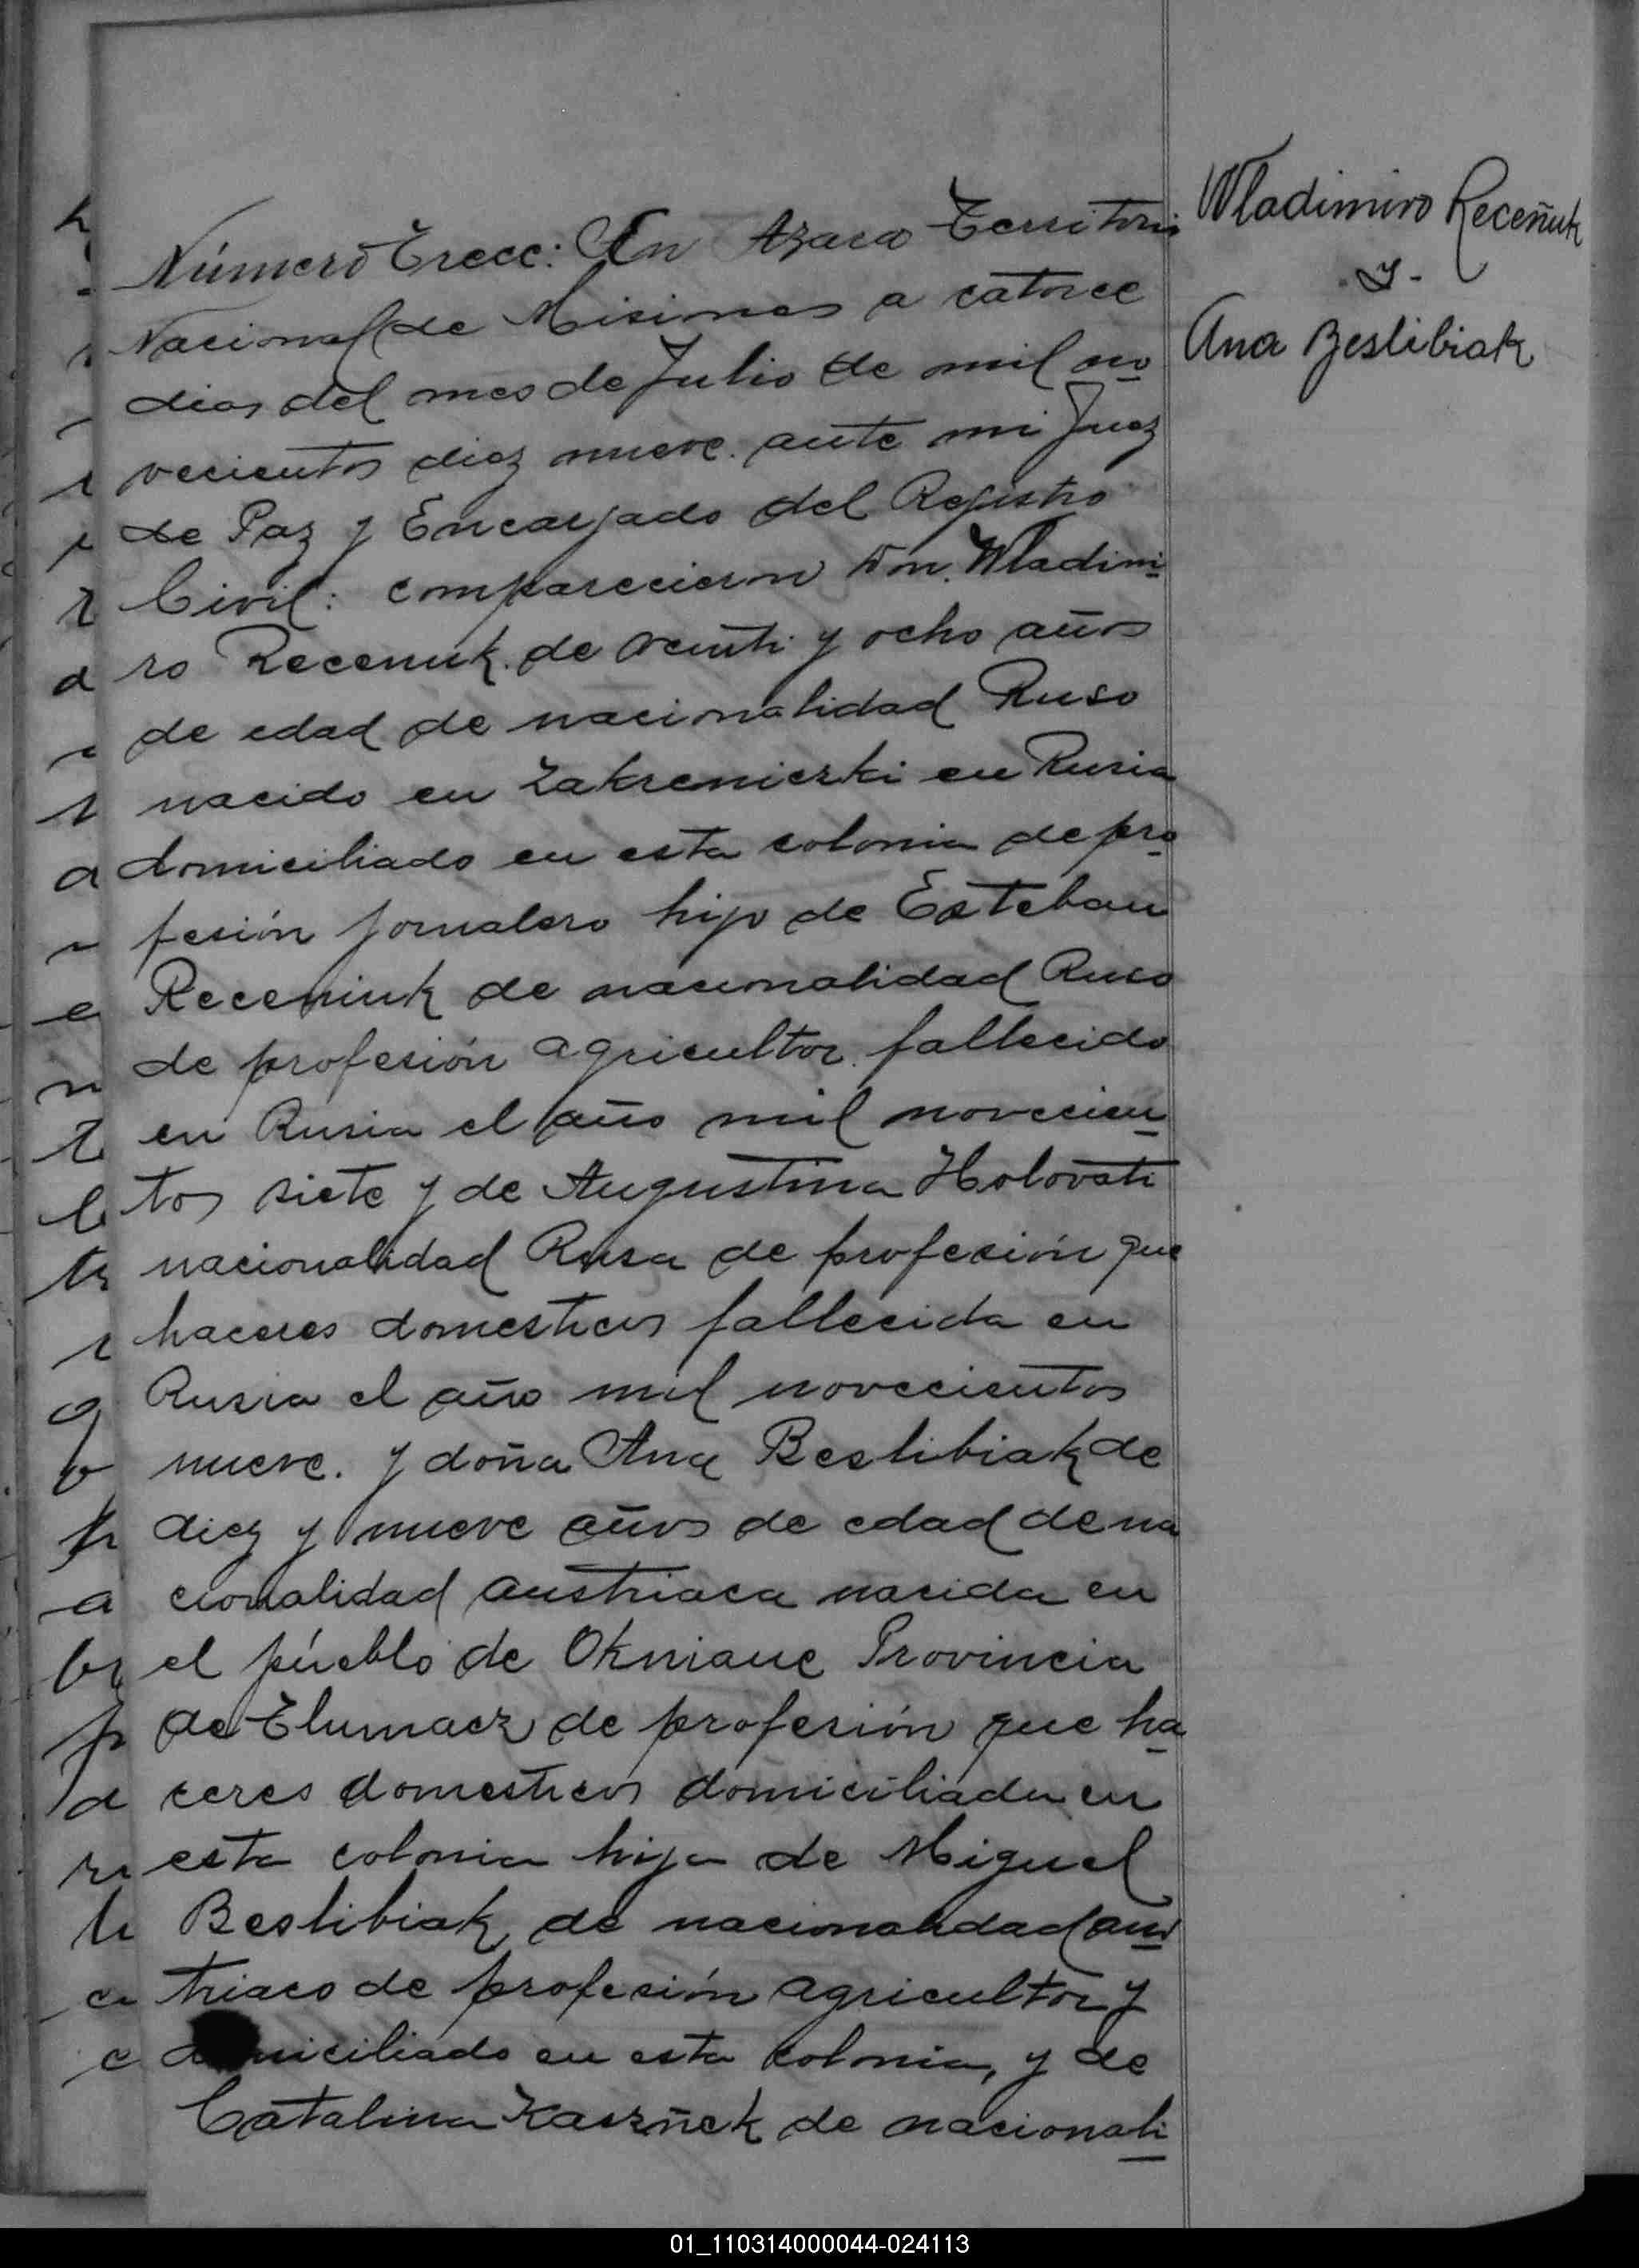 Wladimiro Receñuk
-y-
Ana Beslibiak
Número Trece: En Azara Territorio
Nacional de Misiones a catorce
dias del mes de Julio de mil no
vecientos diez nueve. ante mi Juez
de Paz y Encargado del Registro
Civil: comparecieron Don. Wladimi
ro Recenuk. de veinti y ocho años
de edad de nacionalidad Ruso
nacido en Zakreniezki en Rusia
domiciliado en esta colonia de pro
fesión jornalero hijo de Esteban
Receniuk de nacionalidad Ruso
de profesión agricultor. fallecido
en Rusia el año mil novecien
tos siete y de Augustina Holovati
nacionalidad Rusa de profesión que
haceres domesticos fallecida en
Rusia el año mil novecientos
nueve. y doña Ana Beslibiak de
diez y nueve años de edad de na
cionalidad austriaca nacida en
el pueblo de Okniane Provincia
de Tlumacz de profesión que ha
ceres domesticos domiciliada en
esta colonia hija de Miguel
Beslibiak de nacionalidad aus
triaco de profesión agricultor y
domiciliado en esta colonia, y de
Catalina Kaszñek de nacionali
01_110314000044-024113